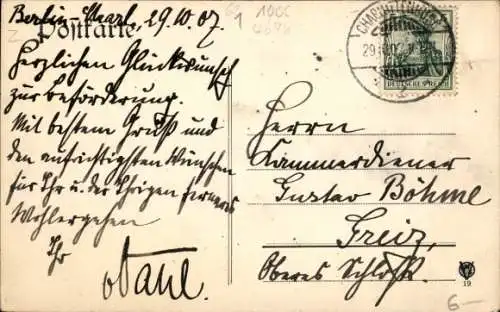 Berlin 29.10.07.
Postkarte
Herzlichen Glückwunsch
zur Beförderung.
Mit bestem Gruß und
den aufrichtigsten Wünschen
für Ihr u. der Ihrigen ferneres
Wohlergehen
Ihr
CHARLOTTENBURG
29.10.07
DEUTSCHES REICH
Herrn
Kammerdiener
Gustav Böhme
Greiz,
Oberes Schloß.
19
6-